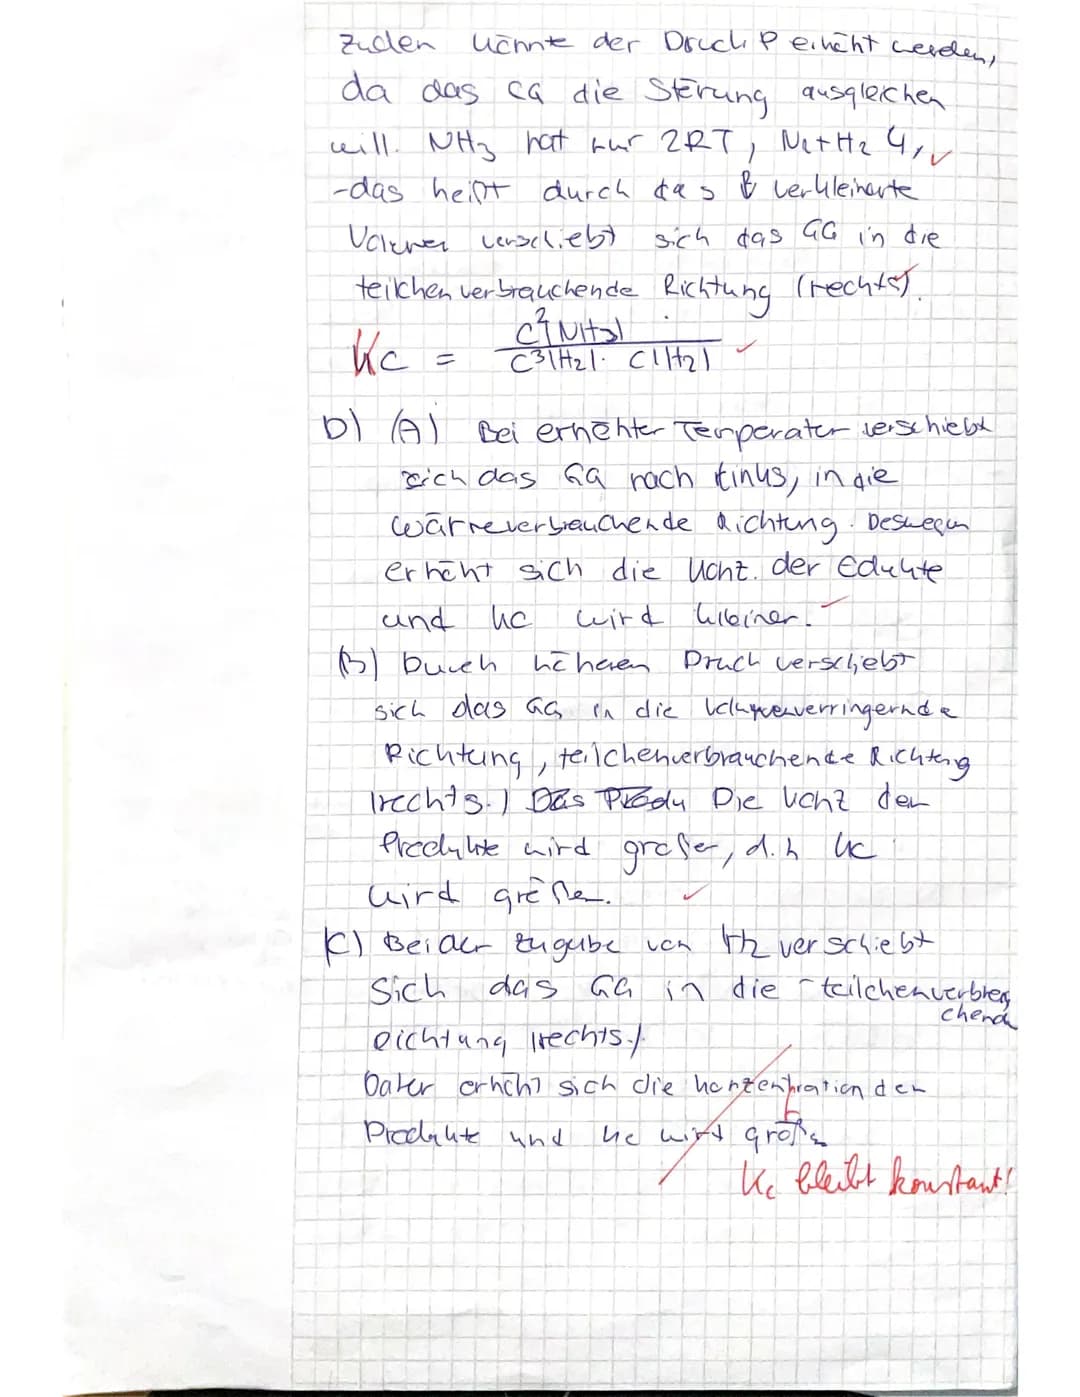 Zudem könnte der Druck P erhöht werden,
da das GG die Störung ausgleichen
will. NH3 hat nur 2RT, N2+H2 4,
-das heißt durch das verkleinerte
Volumen verschiebt sich das GG in die
teilchenverbrauchende Richtung (rechts).
C²(NH3)
Kc =
C³(H2) · C(H2)
b) (A) Bei erhöhter Temperatur verschiebt
sich das GG nach links, in die
wärmeverbrauchende Richtung. Deswegen
erhöht sich die Konz. der Edukte
und Kc wird kleiner.
(B) Durch höheren Druck verschiebt
sich das GG in die volumenverringernde
Richtung, teilchenverbrauchende Richtung
(rechts.) Das Produ Die Konz der
Produkte wird größer, d.h Kc
wird größer.
(C) Bei der Zugabe von H2 verschiebt
sich das GG in die teilchenverbrau
chende
Richtung (rechts.)
Daher erhöht sich die Konzentration der
Produkte und Kc wird größer
Kc bleibt konstant!